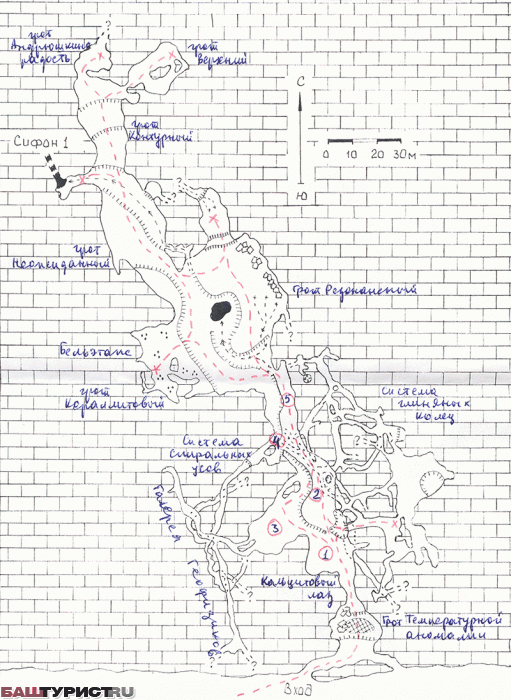 грот
Андрюшкина
радость
грот
Верхний
С
Сифон 1
грот
Контурный
0 10 20 30м
Ю
?
?
грот
Неожиданный
грот Резонансный
?
Бельэтаж
?
грот
Кораллитовый
5
Система
глиняных
колец
Система
спиральных
усов
4
?
?
2
?
3
1
Галерея
Геофизиков
Кальцитовый
лаз
грот Температурной
аномалии
Вход
БАШТУРИСТ.RU